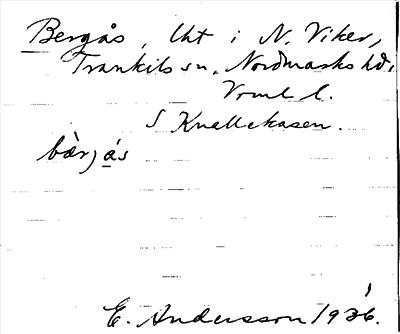 Bergås, Uht i N. Viker,
Trankils sn. Nordmarks hd,
Vrml l.
S Knallekasen.
bær̀j ás
E. Andersson 1936.